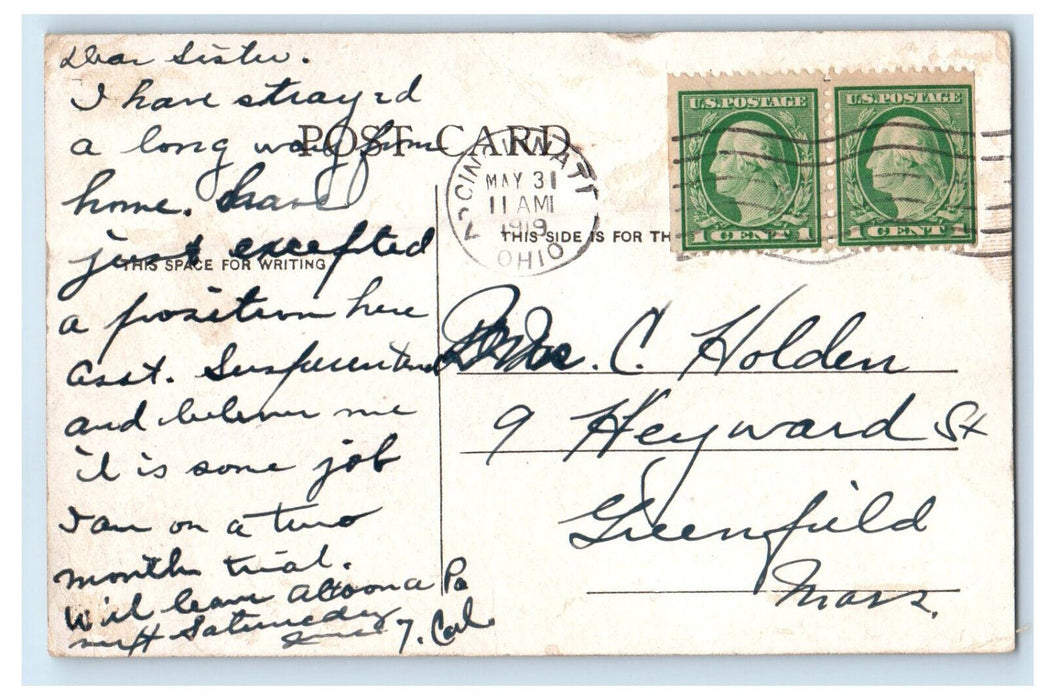 Dear Sister.
I have strayed
a long way from
home. have
just excepted
a position here
asst. Superintend
and believe me
it is some job
I am on a two
months trial.
Will leave Altoona Pa
next Saturday
June 7. Carl
POST CARD
THIS SPACE FOR WRITING
THIS SIDE IS FOR TH
CINCINNATI
MAY 31
11 AM
1919
OHIO
U.S. POSTAGE
1 CENT 1
U.S. POSTAGE
1 CENT 1
Mrs. C. Holden
9 Heyward St
Greenfield
Mass.